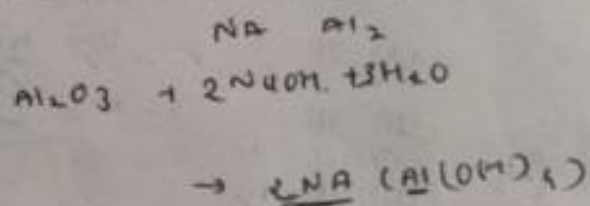 NA Al₂
Al₂O₃ + 2NaOH + 3H₂O
→ 2NA (Al(OH)₄)